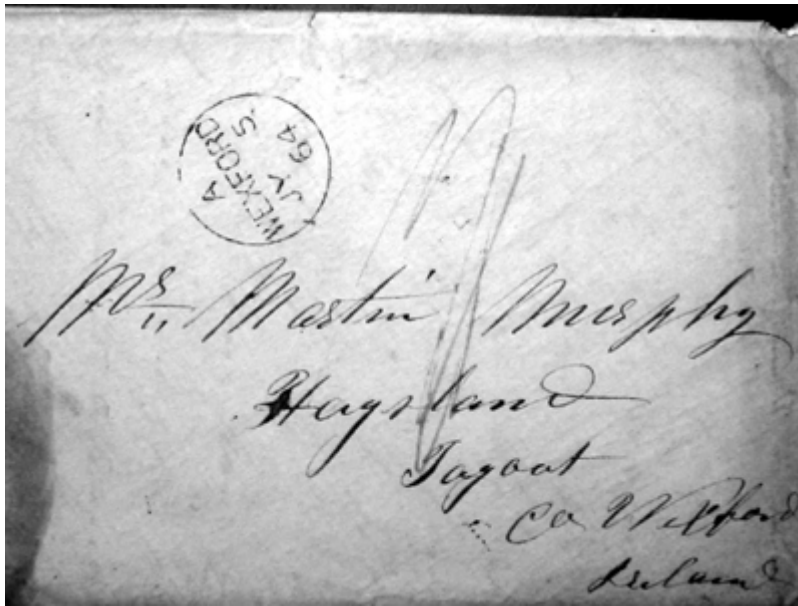 A
WEXFORD
JY 5
64
Mr. Martin Murphy
Haysland
Tagoat
Co Wexford
Ireland